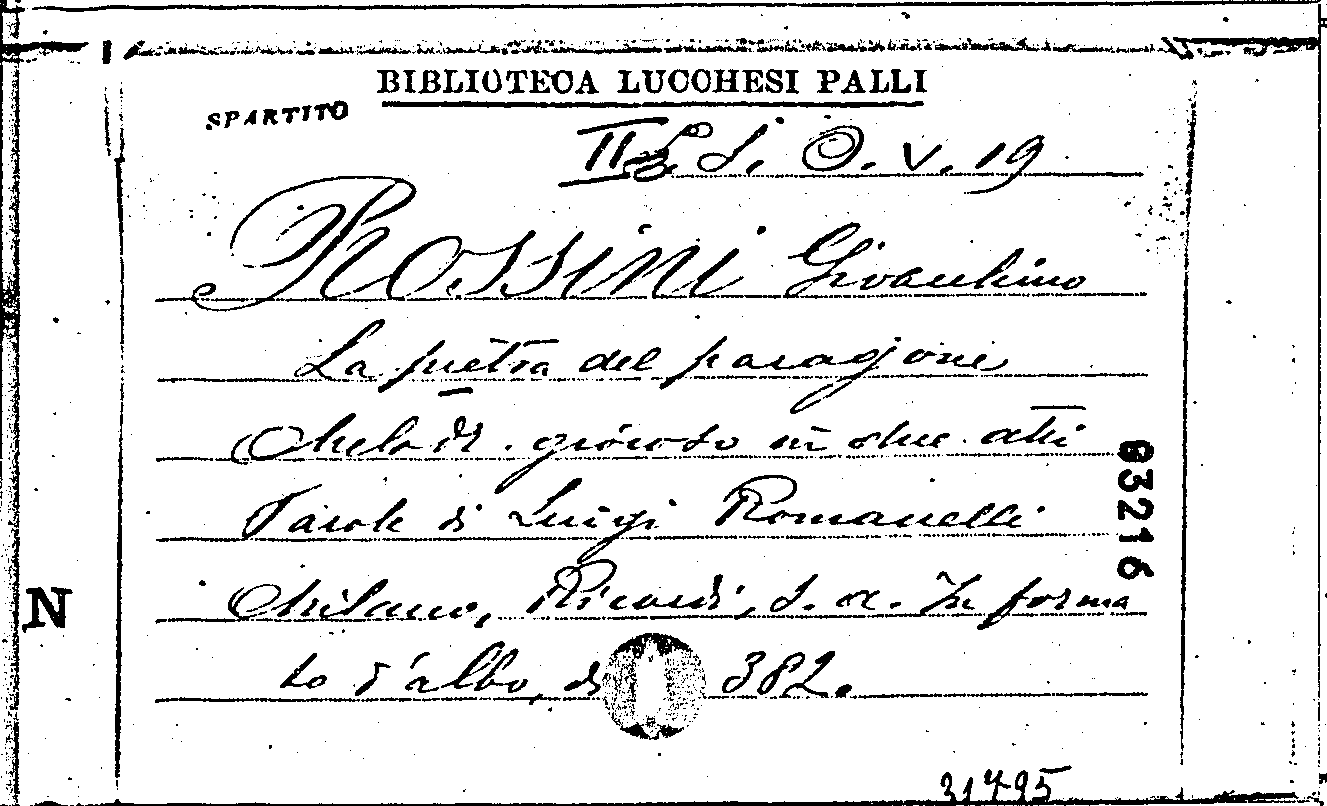 BIBLIOTECA LUCCHESI PALLI
SPARTITO
S. O. V. 19
ROSSINI Gioacchino
La pietra del paragone
Melodr. giocoso in due atti
Parole di Luigi Romanelli
63216
Milano, Ricordi, s. a. In forma
N
to d'albo, di 382.
31795